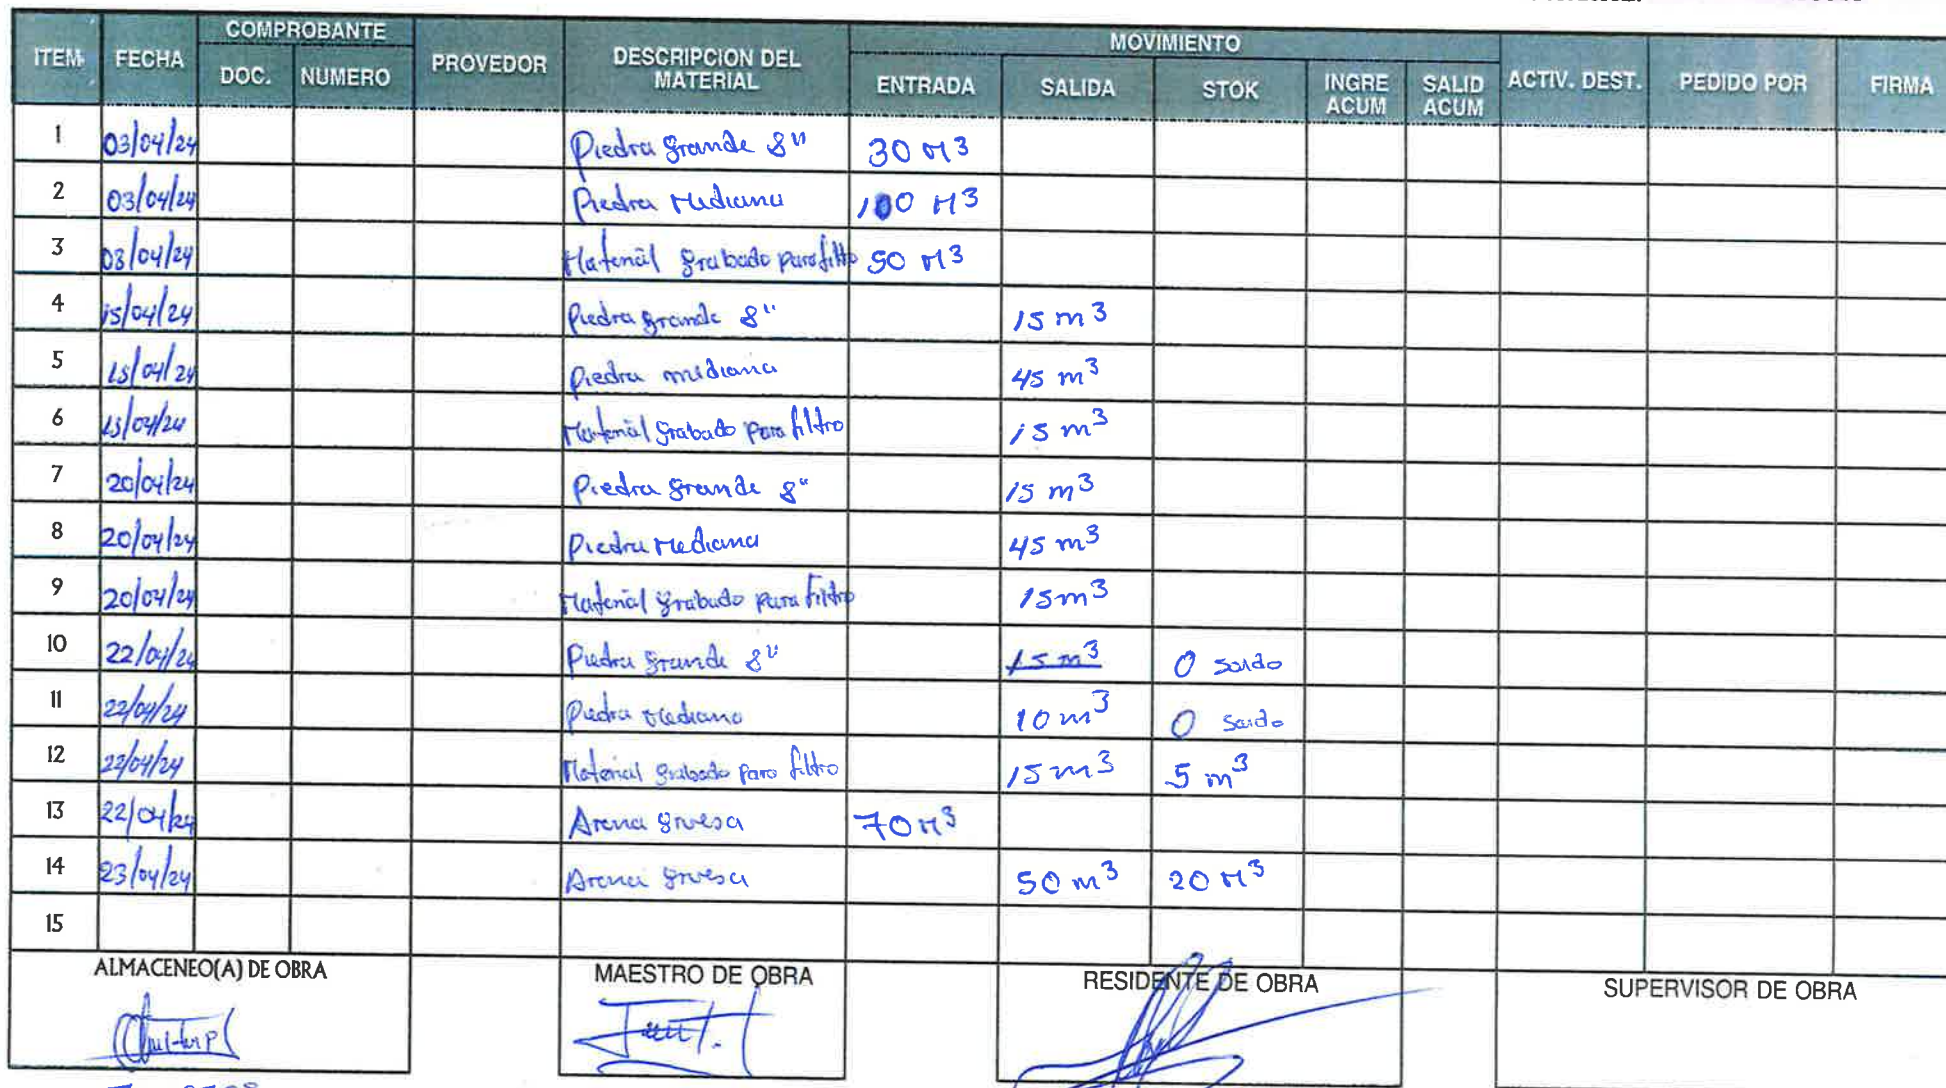 COMPROBANTE MOVIMIENTO
ITEM FECHA DOC. NUMERO PROVEDOR DESCRIPCION DEL MATERIAL ENTRADA SALIDA STOK INGRE ACUM SALID ACUM ACTIV. DEST. PEDIDO POR FIRMA
1 03/04/24 Piedra grande 8" 30 M3
2 03/04/24 Piedra Mediana 100 M3
3 03/04/24 Material grabado para filtro 50 M3
4 15/04/24 Piedra grande 8" 15 m3
5 15/04/24 piedra mediana 45 m3
6 15/04/24 Material grabado para filtro 15 m3
7 20/04/24 Piedra grande 8" 15 m3
8 20/04/24 Piedra Mediana 45 m3
9 20/04/24 Material grabado para filtro 15m3
10 22/04/24 Piedra grande 8" 15 m3 0 saldo
11 22/04/24 Piedra Mediana 10 m3 0 saldo
12 22/04/24 Material grabado para filtro 15 m3 5 m3
13 22/04/24 Arena gruesa 70 M3
14 23/04/24 Arena gruesa 50 m3 20 M3
15
ALMACENEO(A) DE OBRA MAESTRO DE OBRA RESIDENTE DE OBRA SUPERVISOR DE OBRA